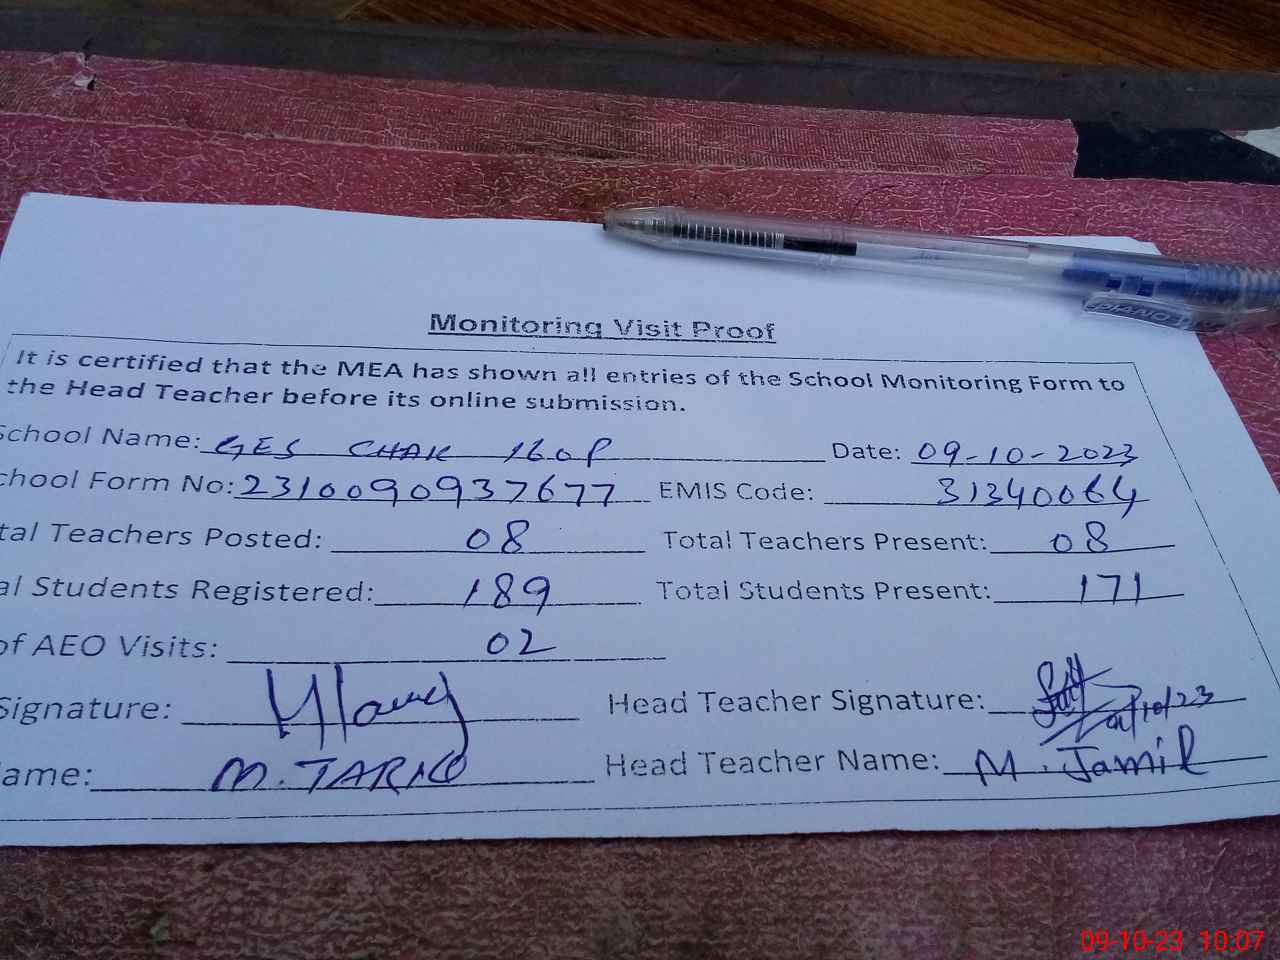 Monitoring Visit Proof
It is certified that the MEA has shown all entries of the School Monitoring Form to
the Head Teacher before its online submission.
School Name: GES CHAK 160P Date: 09-10-2023
chool Form No: 2310090937677 EMIS Code: 31340064
tal Teachers Posted: 08 Total Teachers Present: 08
al Students Registered: 189 Total Students Present: 171
of AEO Visits: 02
Signature: Head Teacher Signature: /10/23
ame: M. TARIQ Head Teacher Name: M. Jamil
PIANO
09-10-23 10:07